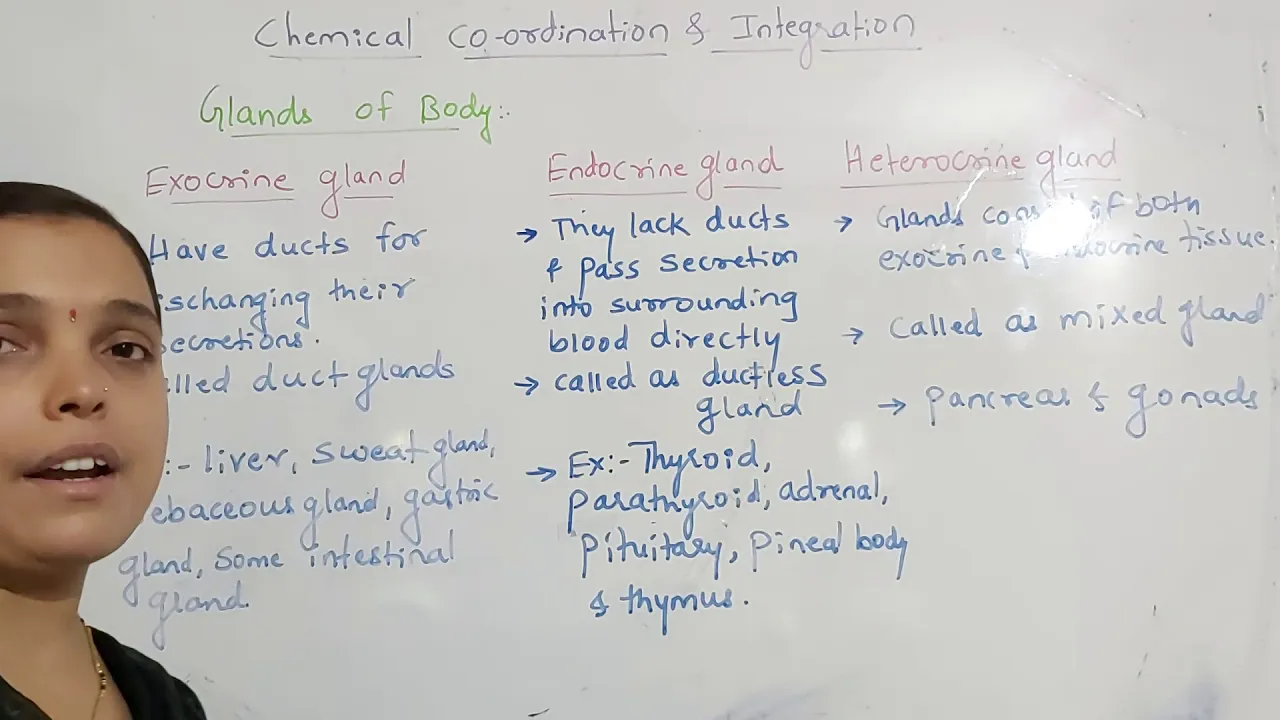 Chemical Co-ordination & Integration
Glands of Body:-
Exocrine gland
Have ducts for
ischanging their
secretions.
lled duct glands
:- liver, sweat gland,
ebaceous gland, gastric
gland, some intestinal
gland.
Endocrine gland
→ They lack ducts
& pass secretion
into surrounding
blood directly
→ called as ductless
gland
→ Ex:- Thyroid,
parathyroid, adrenal,
pituitary, pineal body
& thymus.
Heterocrine gland
→ Glands of both
exocrine tissue.
→ called as mixed gland
→ pancreas & gonads